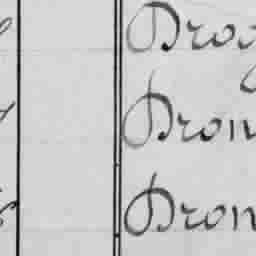 Drog
Dron
Dron